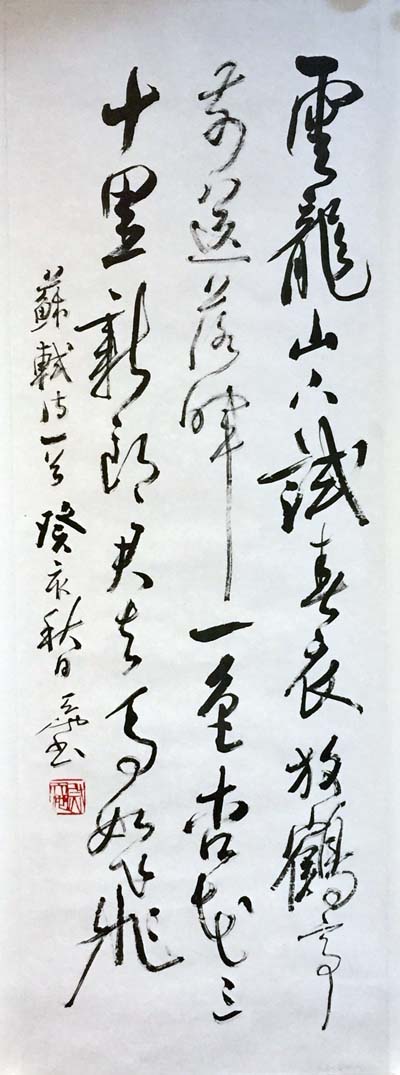 雲龍山下試春衣放鶴亭
前送落暉一色杏花三
十里新郎君去馬如飛
蘇軾詩一首 癸亥秋日 書